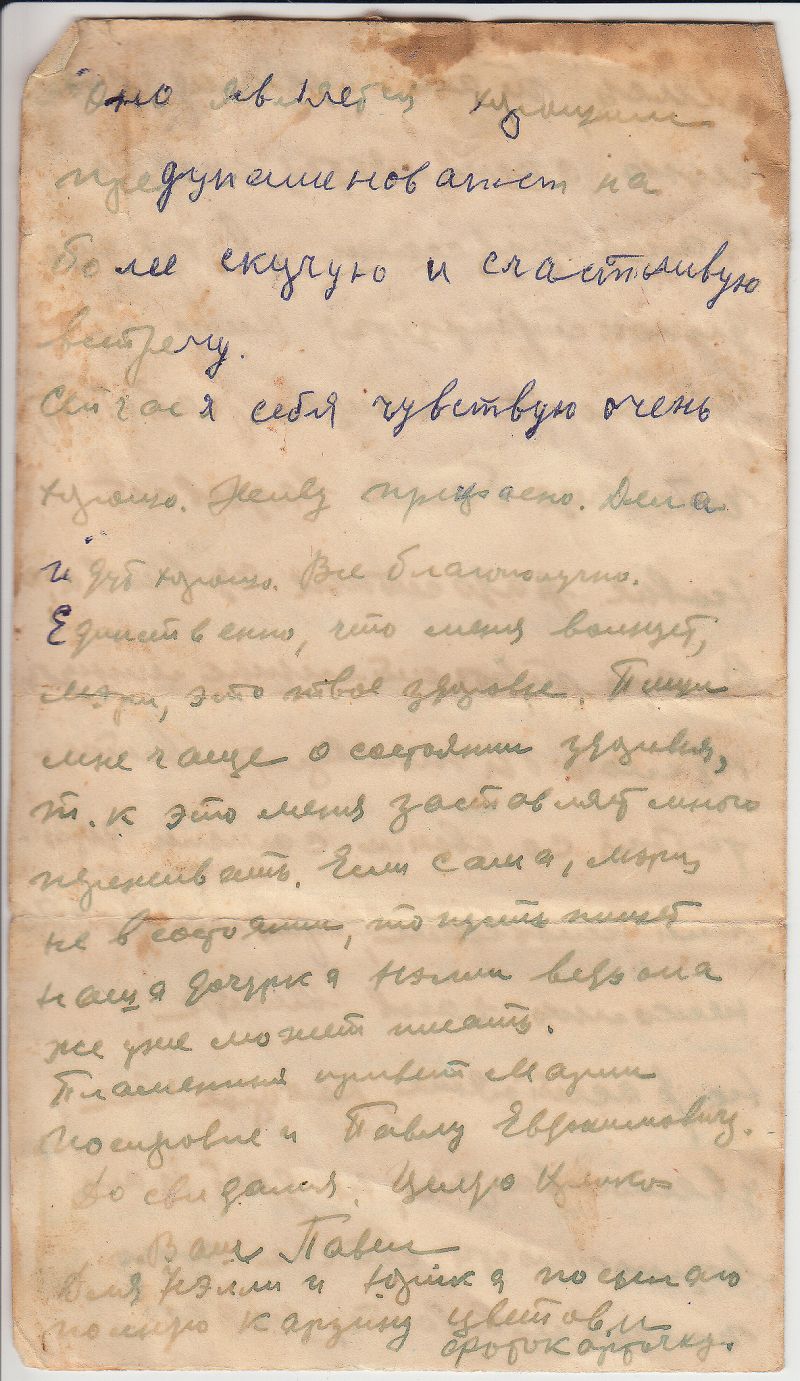 Оно является хорошим
предзнаменованием на
более скучую и счастливую
встречу.
Сейчас я себя чувствую очень
хорошо. Живу прекрасно. Дела
идут хорошо. Все благополучно.
Единственно, что меня волнует,
Мэри, это твое здоровье. Пиши
мне чаще о состоянии здоровья,
т. к это меня заставляет много
переживать. Если сама, Мэри,
не в состоянии, то пусть пишет
наша дочурка Нэлли ведь она
же уже может писать.
Пламенный привет Марии
и Павлу Евфимовичу.
До свидания. Целую крепко
Ваш Павел
Для Нэлли и Юрика посылаю
полную карзину цветов и
фотокарточку.